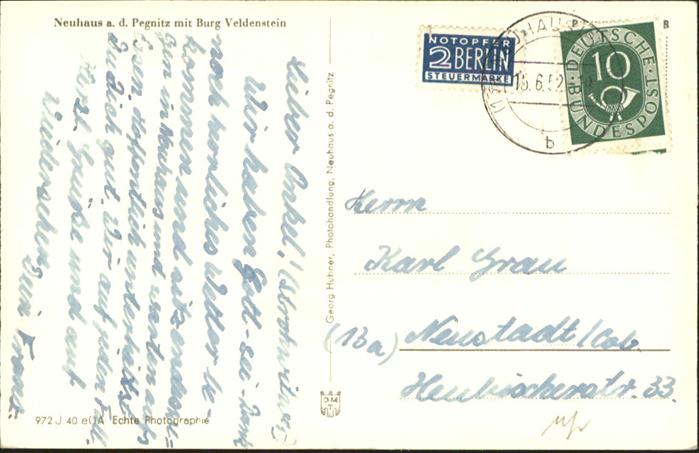 Neuhaus a. d. Pegnitz mit Burg Veldenstein
Lieber Onkel!
Wir haben Gott-sei-Dank
noch herrliches Wetter be=
kommen und sitzen
gen in Neuhaus und warten aufs
Essen. Hoffentlich unterhältst
Du dich gut. Wir auf jeden Fall.
Herzl. Grüße und auf
Wiedersehen
Dein Franz.
972 J 40 e(1A Echte Photographie
Georg Hübner, Photohandlung, Neuhaus a. d. Pegnitz
NOTOPFER
2 BERLIN
STEUERMARKE
NEUHAUS
6.52
b
DEUTSCHE
BUNDESPOST
10
Herrn
Karl Grau
(13a) Neustadt/Cob.
33.